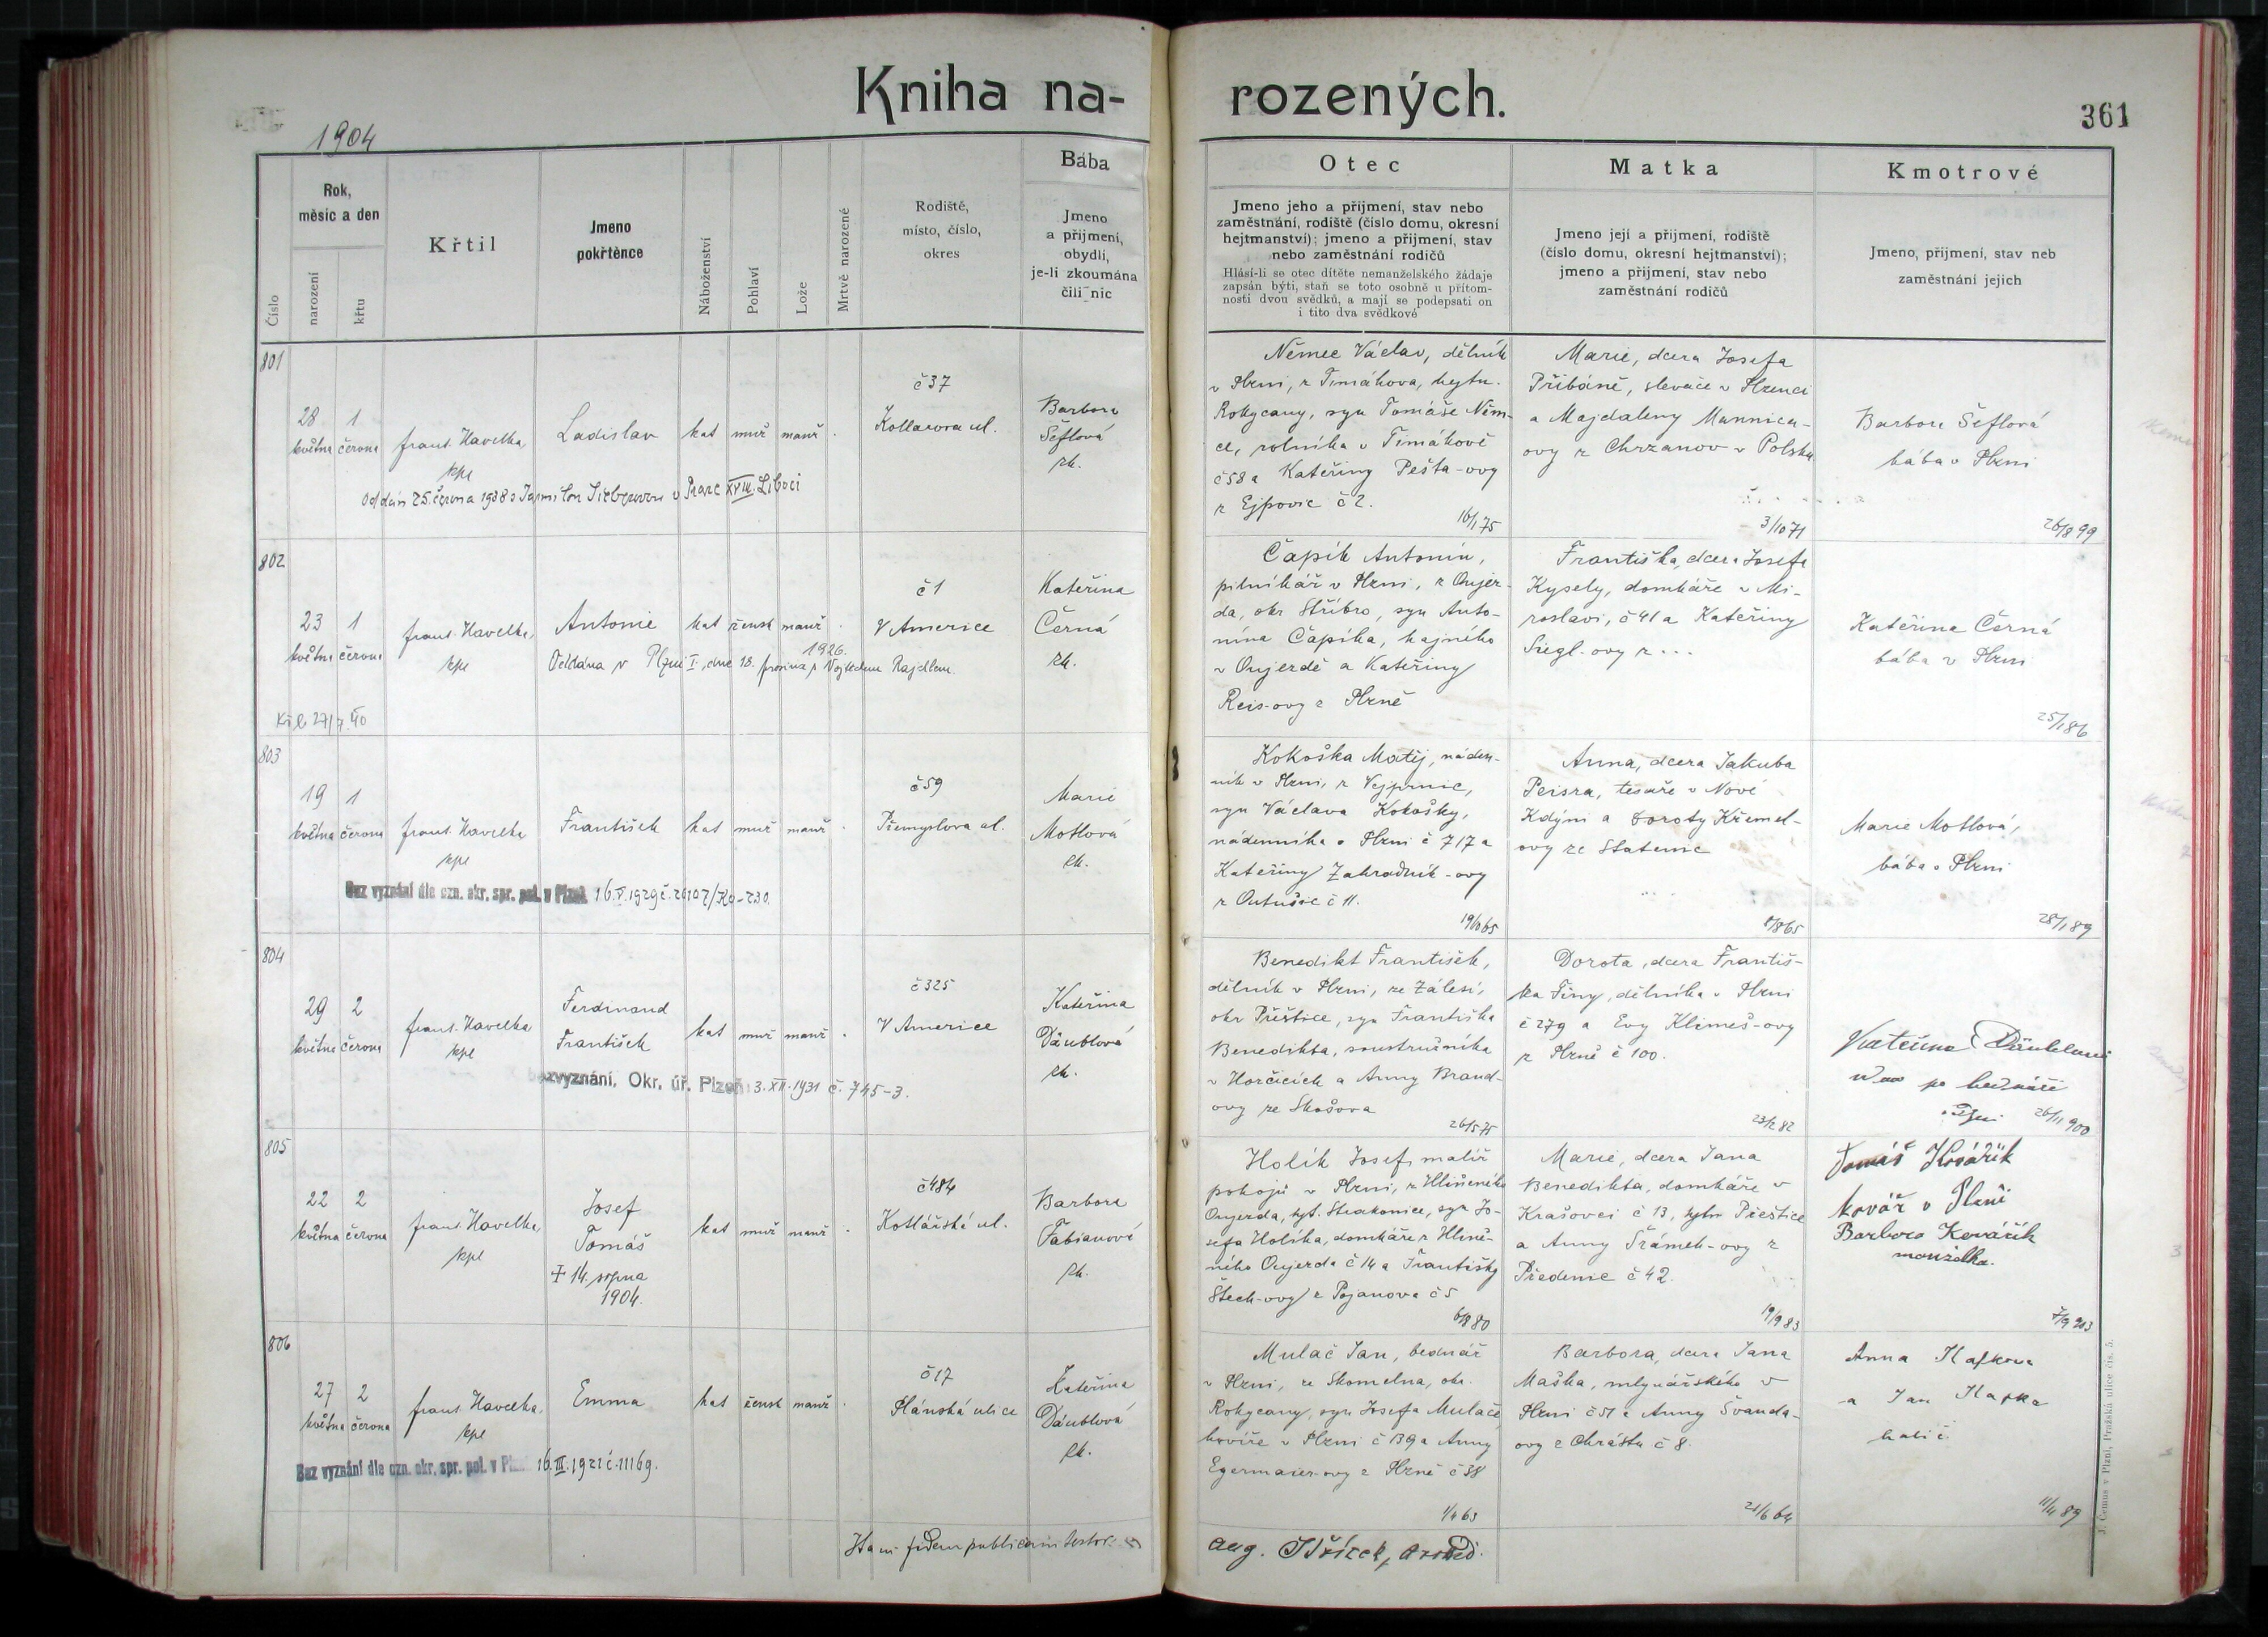 Kniha na-
rozených.
361
1904
Číslo
Rok,
měsíc a den
narození
křtu
Křtil
Jmeno
pokřtěnce
Náboženství
Pohlaví
Lože
Mrtvě narozené
Rodiště,
místo, číslo,
okres
Bába
Jmeno
a přijmení,
obydlí,
je-li zkoumána
čili nic
Otec
Jmeno jeho a přijmení, stav nebo
zaměstnání, rodiště (číslo domu, okresní
hejtmanství); jmeno a přijmení, stav
nebo zaměstnání rodičů
Hlásí-li se otec dítěte nemanželského žádaje
zapsán býti, staň se toto osobně u přítom-
nosti dvou svědků, a mají se podepsati on
i tito dva svědkové
Matka
Jmeno její a přijmení, rodiště
(číslo domu, okresní hejtmanství);
jmeno a přijmení, stav nebo
zaměstnání rodičů
Kmotrové
Jmeno, přijmení, stav neb
zaměstnání jejich
801
28 1
května června
frant. Havelka
kpl
Ladislav
kat muž manž
č 37
Kollarova ul.
Barbora
Šeflová
zk.
Oddán 25. června 1938 s v Praze XVIII. Liboci
Němec Václav, dělník
v Plzni, z Timákova, hejtm.
Rokycany, syn Tomáše Něm-
ce, rolníka v Timákově
č 58 a Kateřiny Pešta-ovy
z Ejpovic č 2.
16/1 75
Marie, dcera Josefa
Přibáně, slevače v Plzenci
a Majdaleny
ovy z Chrzanov v Polsku
3/10 71
Barbora Šeflová
bába v Plzni
26/8 99
802
23 1
května června
frant. Havelka,
kpl
Antonie
kat žensk manž
č 1
V Americe
Kateřina
Černá
zk.
Oddána v Plzni I., dne 18. prosince 1926. s Vojtěchem Rajdlem.
27/7 40
Čapík Antonín,
pilníkář v Plzni, z Oujez-
da, okr Stříbro, syn Anto-
nína Čapíka, hajného
v Oujezdě a Kateřiny
Reis-ovy z Plzně
Františka, dcera Josefa
Kysely, domkáře v Mi-
roslavi, č 41 a Kateřiny
Siegl-ovy z ...
Kateřina Černá
bába v Plzni
25/1 86
803
19 1
května června
frant. Havelka
kpl
František
kat muž manž
č 59
Přemyslova ul.
Marie
Motlová
zk.
Bez vyznání dle ozn. okr. spr. pol. v Plzni 16. V. 1929 č.
Kokoška Matěj, náden-
ník v Plzni, z Vejprnic,
syn Václava Kokošky,
nádenníka v Plzni č 717 a
Kateřiny Zahradník-ovy
z č 11.
19/10 65
Anna, dcera Jakuba
Peisra, tesaře v Nové
Kdýni a Doroty Křemel-
ovy ze Statenic
8/8 65
Marie Motlová,
bába v Plzni
28/1 89
804
29 2
května června
frant. Havelka
kpl
Ferdinand
František
kat muž manž
č 325
V Americe
Kateřina
Däublová
zk.
bezvyznání, Okr. úř. Plzeň 3. XII. 1931 č. 745-3.
Benedikt František,
dělník v Plzni, ze Zálesí,
okr Přeštice, syn Františka
Benedikta, soustružníka
v Horčicích a Anny Brand-
ovy ze Skašova
26/5 75
Dorota, dcera Františ-
ka Finy, dělníka v Plzni
č 279 a Evy Klimeš-ovy
z Plzně č 100.
23/2 82
Kateřina
po bednáři
26/11 900
805
22 2
května června
frant. Havelka,
kpl
Josef
Tomáš
† 14. srpna
1904.
kat muž manž
č 484
Kotlářská ul.
Barbora
Fabianová
zk.
Holík Josef, malíř
pokojů v Plzni, z Hliněného
Oujezda, hjt. Strakonice, syn Jo-
sefa Holíka, domkáře z Hlině-
ného Oujezda č 14 a Františky
Štech-ovy z Pojanova č 5
6/8 80
Marie, dcera Jana
Benedikta, domkáře v
Krašovci č 13, hjtm Přeštice
a Anny Šrámek-ovy z
Předenic č 42.
19/9 83
Tomáš Kovářík
kovář v Plzni
Barbora Kovářík
manželka.
7/9 903
806
27 2
května června
frant. Havelka,
kpl
Emma
kat žensk manž
č 17
Plánská ulice
Kateřina
Däublová
zk.
Bez vyznání dle ozn. okr. spr. pol. v Plzni 16. III. 1921 č. 11169.
Mulač Jan, bednář
v Plzni, ze Skomelna, okr.
Rokycany, syn Josefa Mulače,
kováře v Plzni č 139 a Anny
Egermaier-ovy z Plzně č 38
1/4 63
Barbora, dcera Jana
Maška, mlynářského v
Plzni č 51 a Anny Švanda-
ovy z Chrástu č 8.
21/6 64
Anna Hafkova
a Jan Hafka
holič
11/4 89
Ita in fidem publicam testor
Aug.
J. Černus v Plzni, Pražská ulice čís. 5.